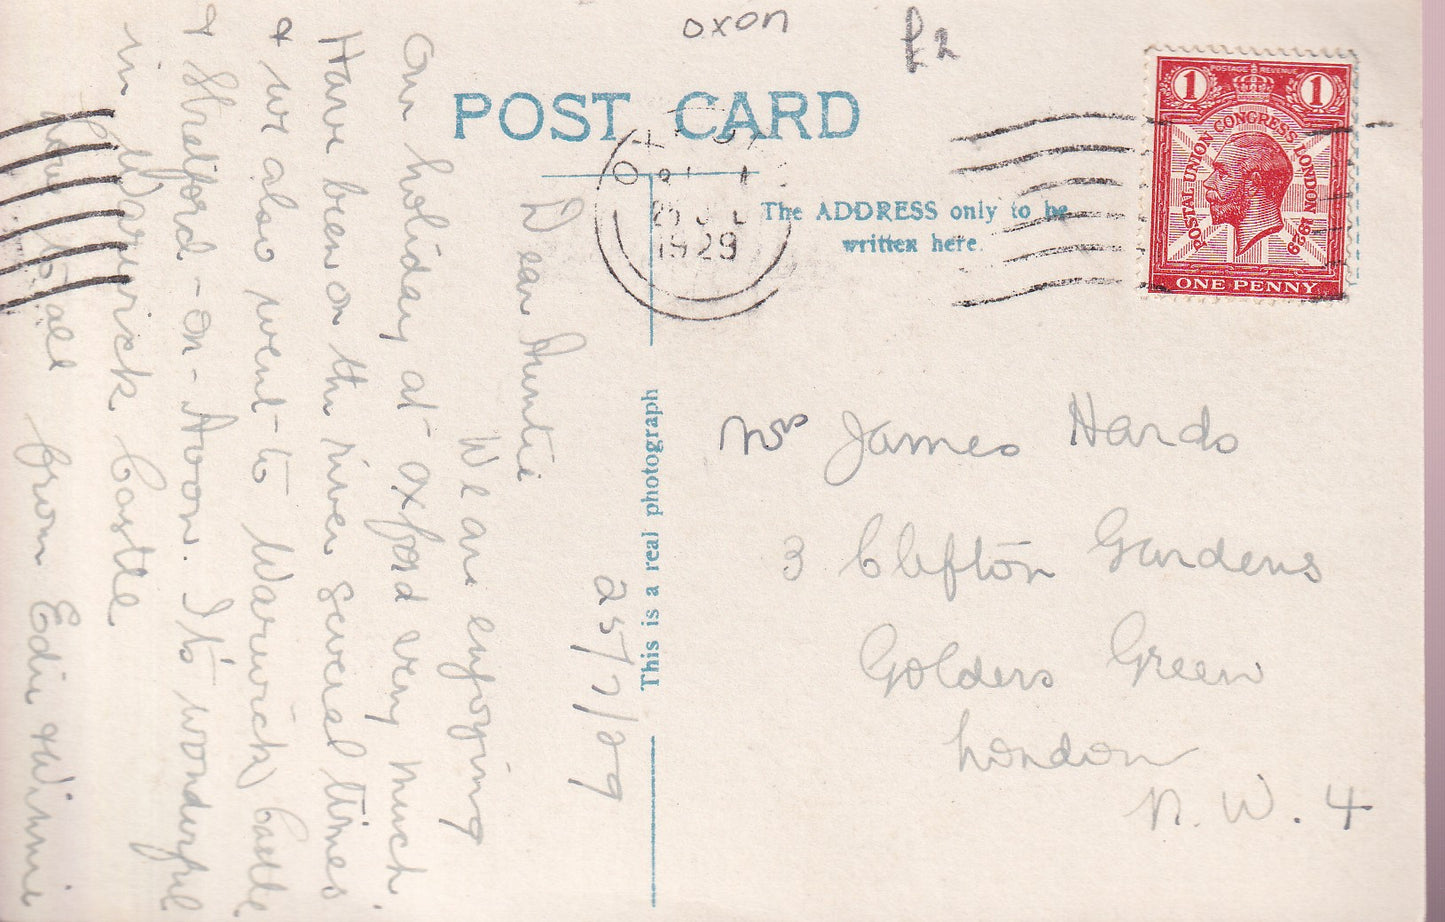 oxon
£2
POST CARD
The ADDRESS only to be
written here.
This is a real photograph
1 POSTAGE REVENUE 1
POSTAL UNION CONGRESS LONDON 1929
ONE PENNY
1929
25/7/29
Dear Auntie
We are enjoying
our holiday at oxford very much.
Have been on the river several times
& we also went to Warwick Castle
& Stratford-on-Avon. It's wonderful
in Warwick Castle
Love to all from Edie & Winnie
Mrs James Hards
3 Clifton Gardens
Golders Green
London
N.W.4